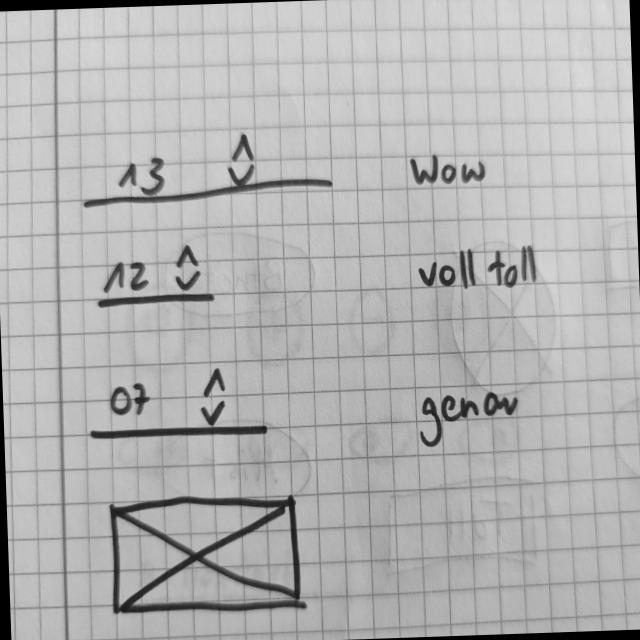 13 Wow
12 voll toll
07 genau